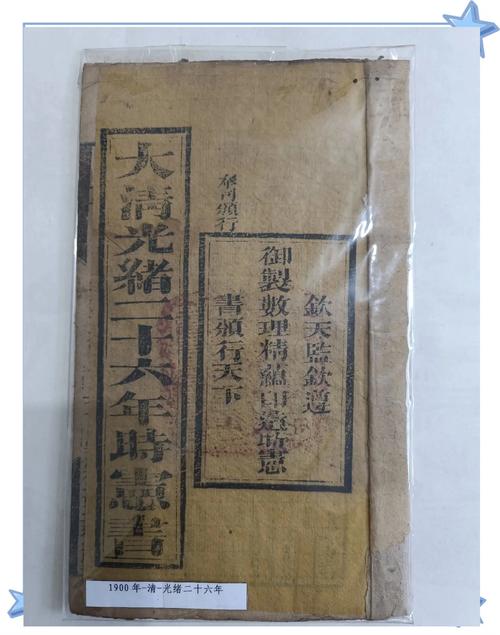 大清光緒二十六年時憲書
奉旨頒行
欽天監欽遵
御製數理精蘊印造時憲
書頒行天下
1900年-清-光绪二十六年